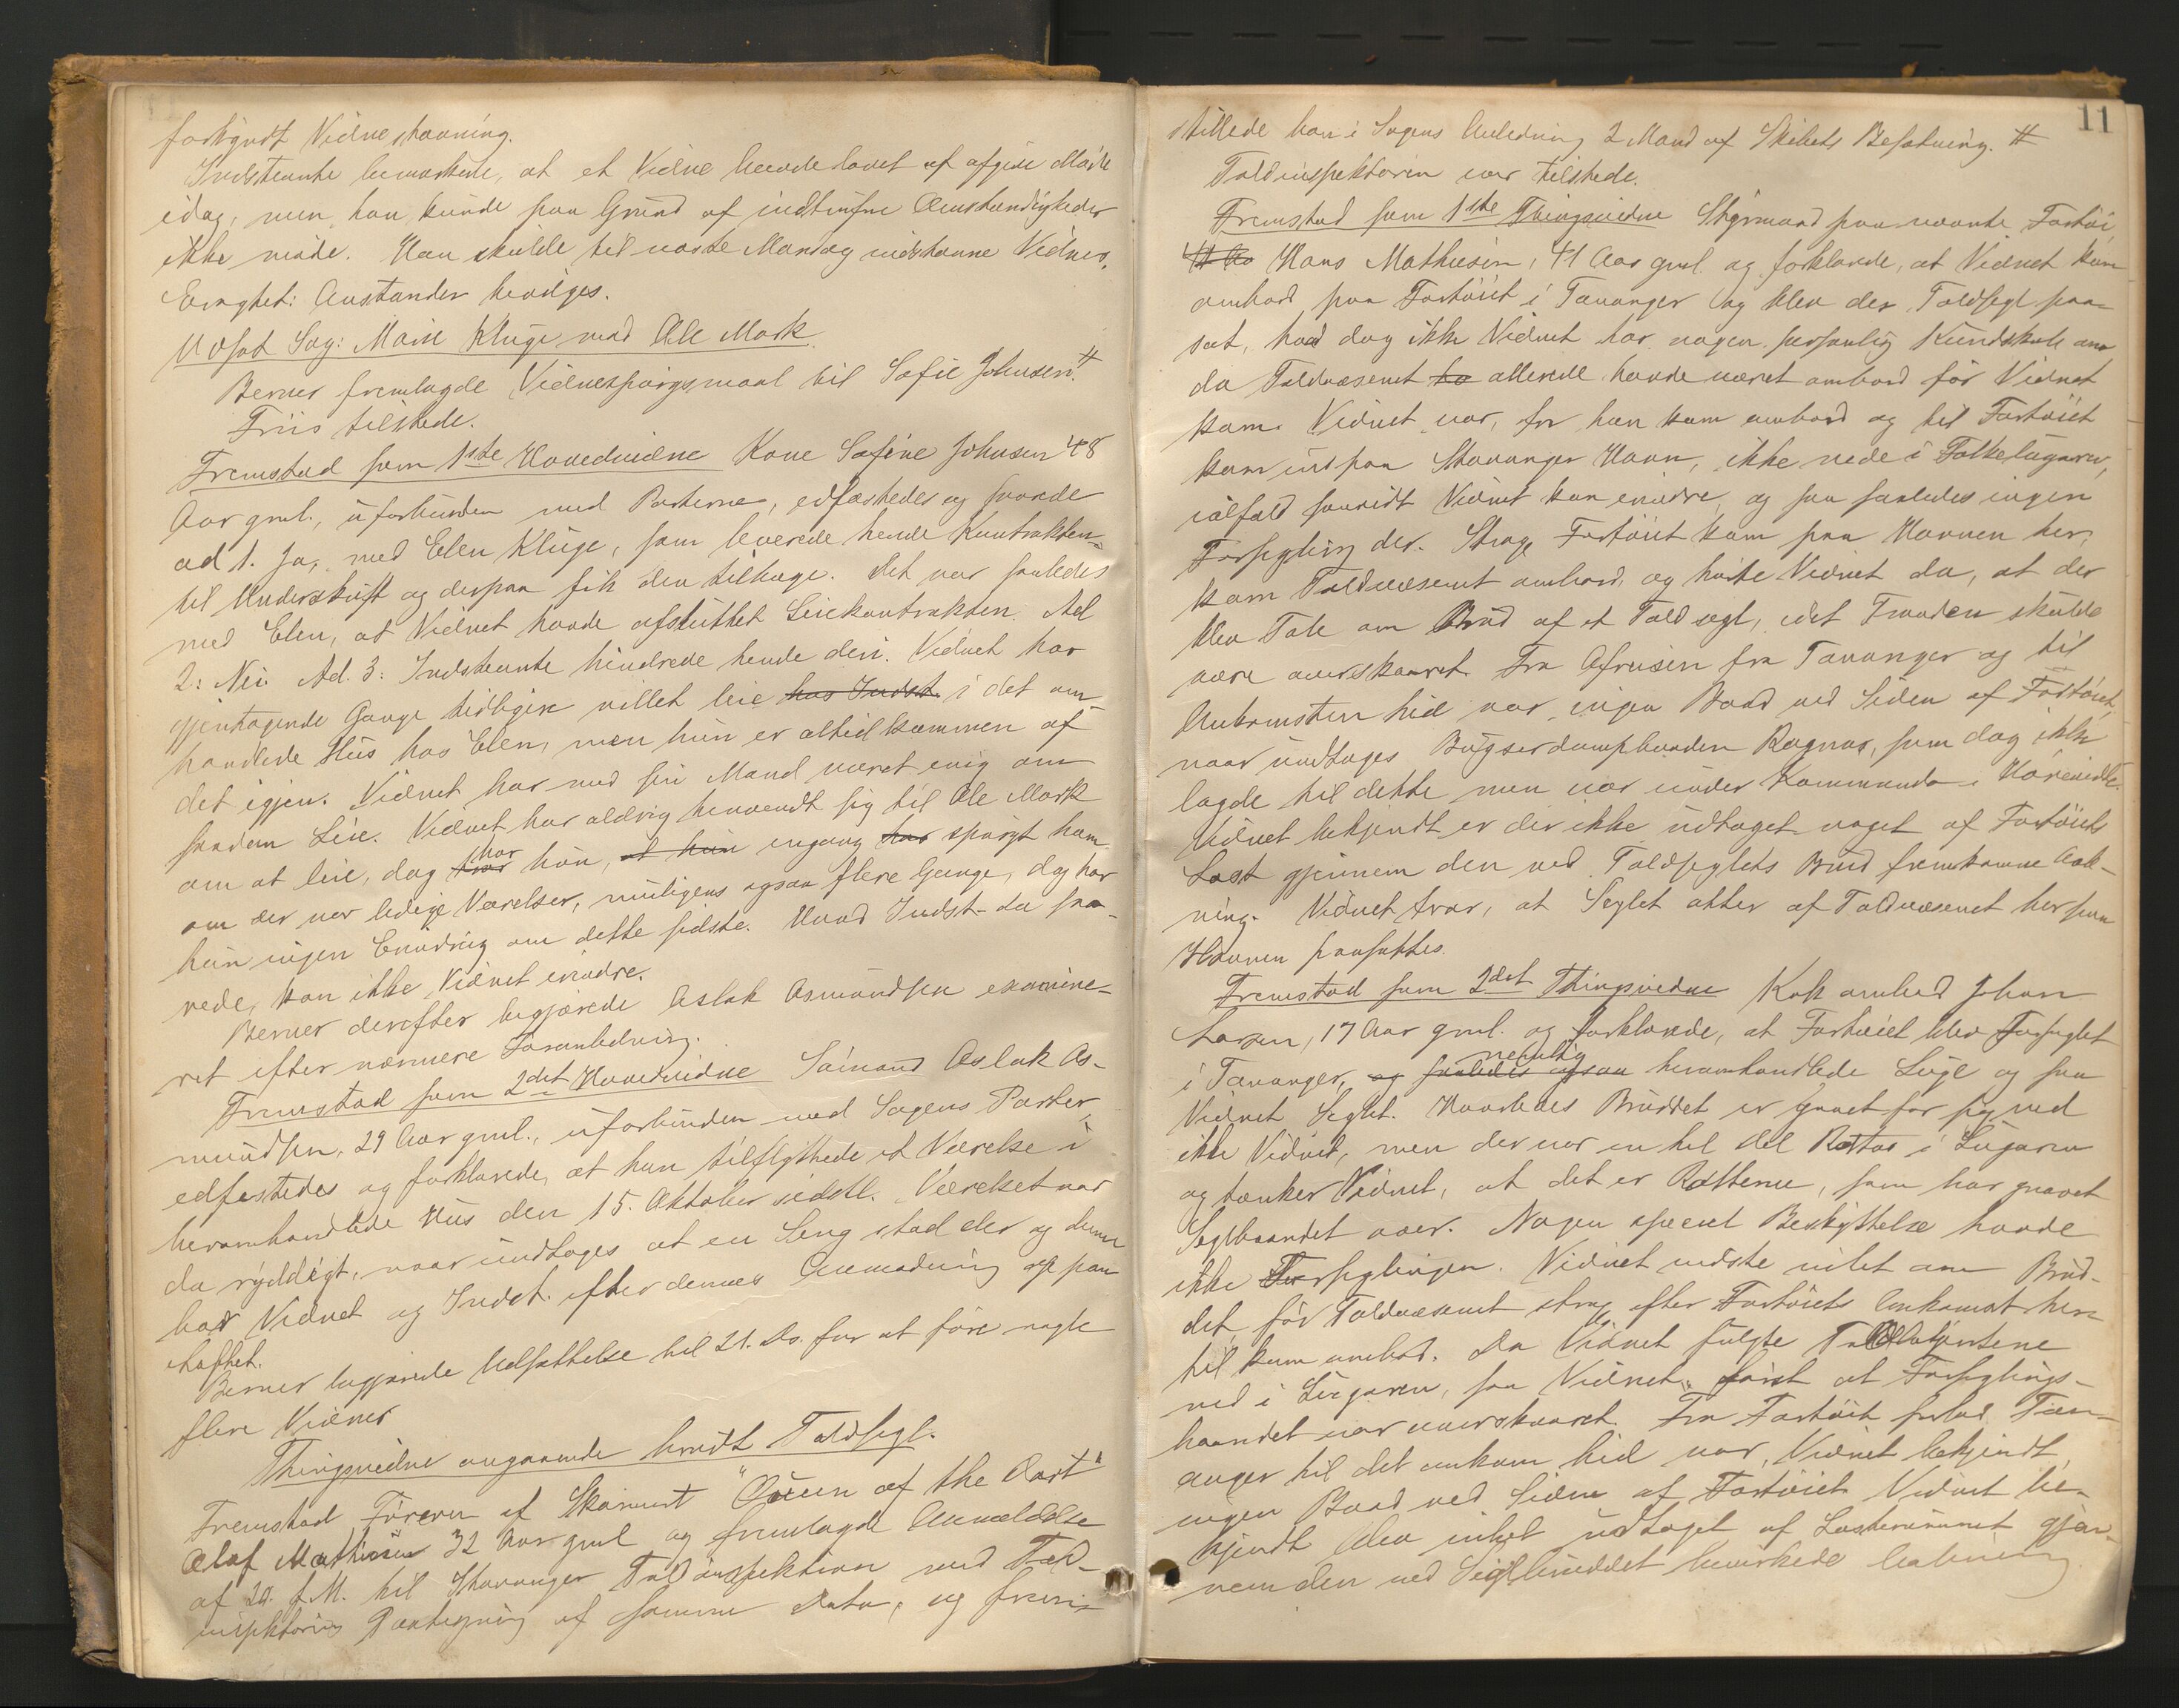 forkyndt Vidnestævning.
Indstevnte bemærkede, at et Vidne havde lovet at afgive Møde
idag, men han kunde paa Grund af indtrufne Omstændigheder
ikke møde. Han skulde til næste Mandag indstævne Vidner.
Eragtet: Anstanden bevilges.
Udsat Sag: Marie Kluge mod Ole Mark.
Berner fremlagde Vidnespørgsmaal til Sofie Johnsen. #
Friis tilstede.
Fremstod som 1ste Hovedvidne Kone Sofine Johnsen 48
Aar gml., uforbunden med Parterne, edfæstedes og svarede
ad 1. Ja, med Elen Kluge, som leverede hende Kontrakten
til Underskrift og derpaa fik den tilbage. Det var saaledes
med Elen, at Vidnet havde afsluttet Leiekontrakten. Ad
2: Nei. Ad. 3: Indstevnte hindrede hende deri. Vidnet har
gjentagende Gange tidligere villet leie hos Indst. i det om-
handlede Hus hos Elen, men hun er altid kommen af
det igjen. Vidnet har med sin Mand været enig om
saadan Leie. Vidnet har aldrig henvendt sig til Ole Mark
om at leie, dog har hun, at hun engang har spurgt ham
om der var ledige Værelser, muligens ogsaa flere Gange, dog har
hun ingen Erindring om dette sidste. Hvad Indst. da sva-
rede, kan ikke Vidnet erindre.
Berner derefter begjærede Aslak Asmundsen examine-
ret efter nærmere Foranledning.
Fremstod som 2det Hovedvidne Sømand Aslak As-
mundsen, 29 Aar gml., uforbunden med Sagens Parter,
edfæstedes og forklarede, at han tilflyttede et Værelse i
heromhandlede Hus den 15. Oktober sidstl. Værelset var
da ryddigt, naar undtages at en Seng stod der og denne
bar Vidnet og Indst. efter dennes Anmodning op paa
Loftet.
Berner begjærede Udsættelse til 21. ds. for at føre nogle
flere Vidner
Thingsvidne angaaende brudt Toldsegl.
Fremstod Føreren af Skonnert "Queen of the Dart"
Olaf Mathiesen 32 Aar gml og fremlagde Anmeldelse
af 20. f. M. til Stavanger Toldinspektion med Told-
inspektørens Paategning af samme Dato, og frem-
11
stillede han i Sagens Anledning 2 Mand af Skibets Besætning. #
Toldinspektøren var tilstede.
Fremstod som 1ste Thingsvidne Styrmand paa nævnte Fartøi,
41 Aa Hans Mathiesen, 41 Aar gml. og forklarede, at Vidnet kom
ombord paa Fartøiet i Tananger og blev der Toldsegl paa-
sat, hvad dog ikke Vidnet har nogen personlig Kundskab om
da Toldvæsenet ha allerede havde været ombord før Vidnet
kom. Vidnet var, fra han kom ombord og til Fartøiet
kom ind paa Stavanger Havn, ikke nede i Folkelugaren,
ialfald saavidt Vidnet kan erindre, og saa saaledes ingen
Forsegling der. Strax Fartøiet kom paa Havnen her,
kom Toldvæsenet ombord, og hørte Vidnet da, at der
blev Tale om Brud af et Toldsegl, idet Traaden skulde
være overskaaret. Fra Afreisen fra Tananger og til
Ankomsten hid var ingen Baad ved Siden af Fartøiet,
naar undtages Bugserdampbaaden Ragnar, som dog ikke
lagde til dette men var under Kommando i Hørevidde.
Vidnet bekjendt er der ikke udtaget noget af Fartøiets
Last gjennem den ved Toldseglets Brud fremkomne Aab-
ning. Vidnet tror, at Seglet atter af Toldvæsenet her paa
Havnen paasattes.
Fremstod som 2det Thingsvidne Kok ombord Johan
Larsen, 17 Aar gml. og forklarede, at Fartøiet blev forseglet
i Tananger, og saaledes ogsaa nemlig heromhandlede Luge og saa
Vidnet Seglet. Hvorledes Bruddet er gaaet for sig ved
ikke Vidnet, men der var en hel del Rotter i Lugaren
og tænker Vidnet, at det er Rotterne, som har gnavet
Seglbaandet over. Nogen speciel Beskyttelse havde
ikke Forseglingen. Vidnet vidste intet om Brud-
det før Toldvæsenet strax efter Fartøiets Ankomst her
til kom ombord. Da Vidnet fulgte Toldbetjentene
ned i Lugaren, saa Vidnet først at Forseglings-
baandet var overskaaret. Fra Fartøiet forlod Tan-
anger til det ankom hid var, Vidnet bekjendt,
ingen Baad ved Siden af Fartøiet. Vidnet be-
kjendt blev intet udtaget af Lasterummet gjen-
nem den ved Seglbruddet bevirkede Aabning